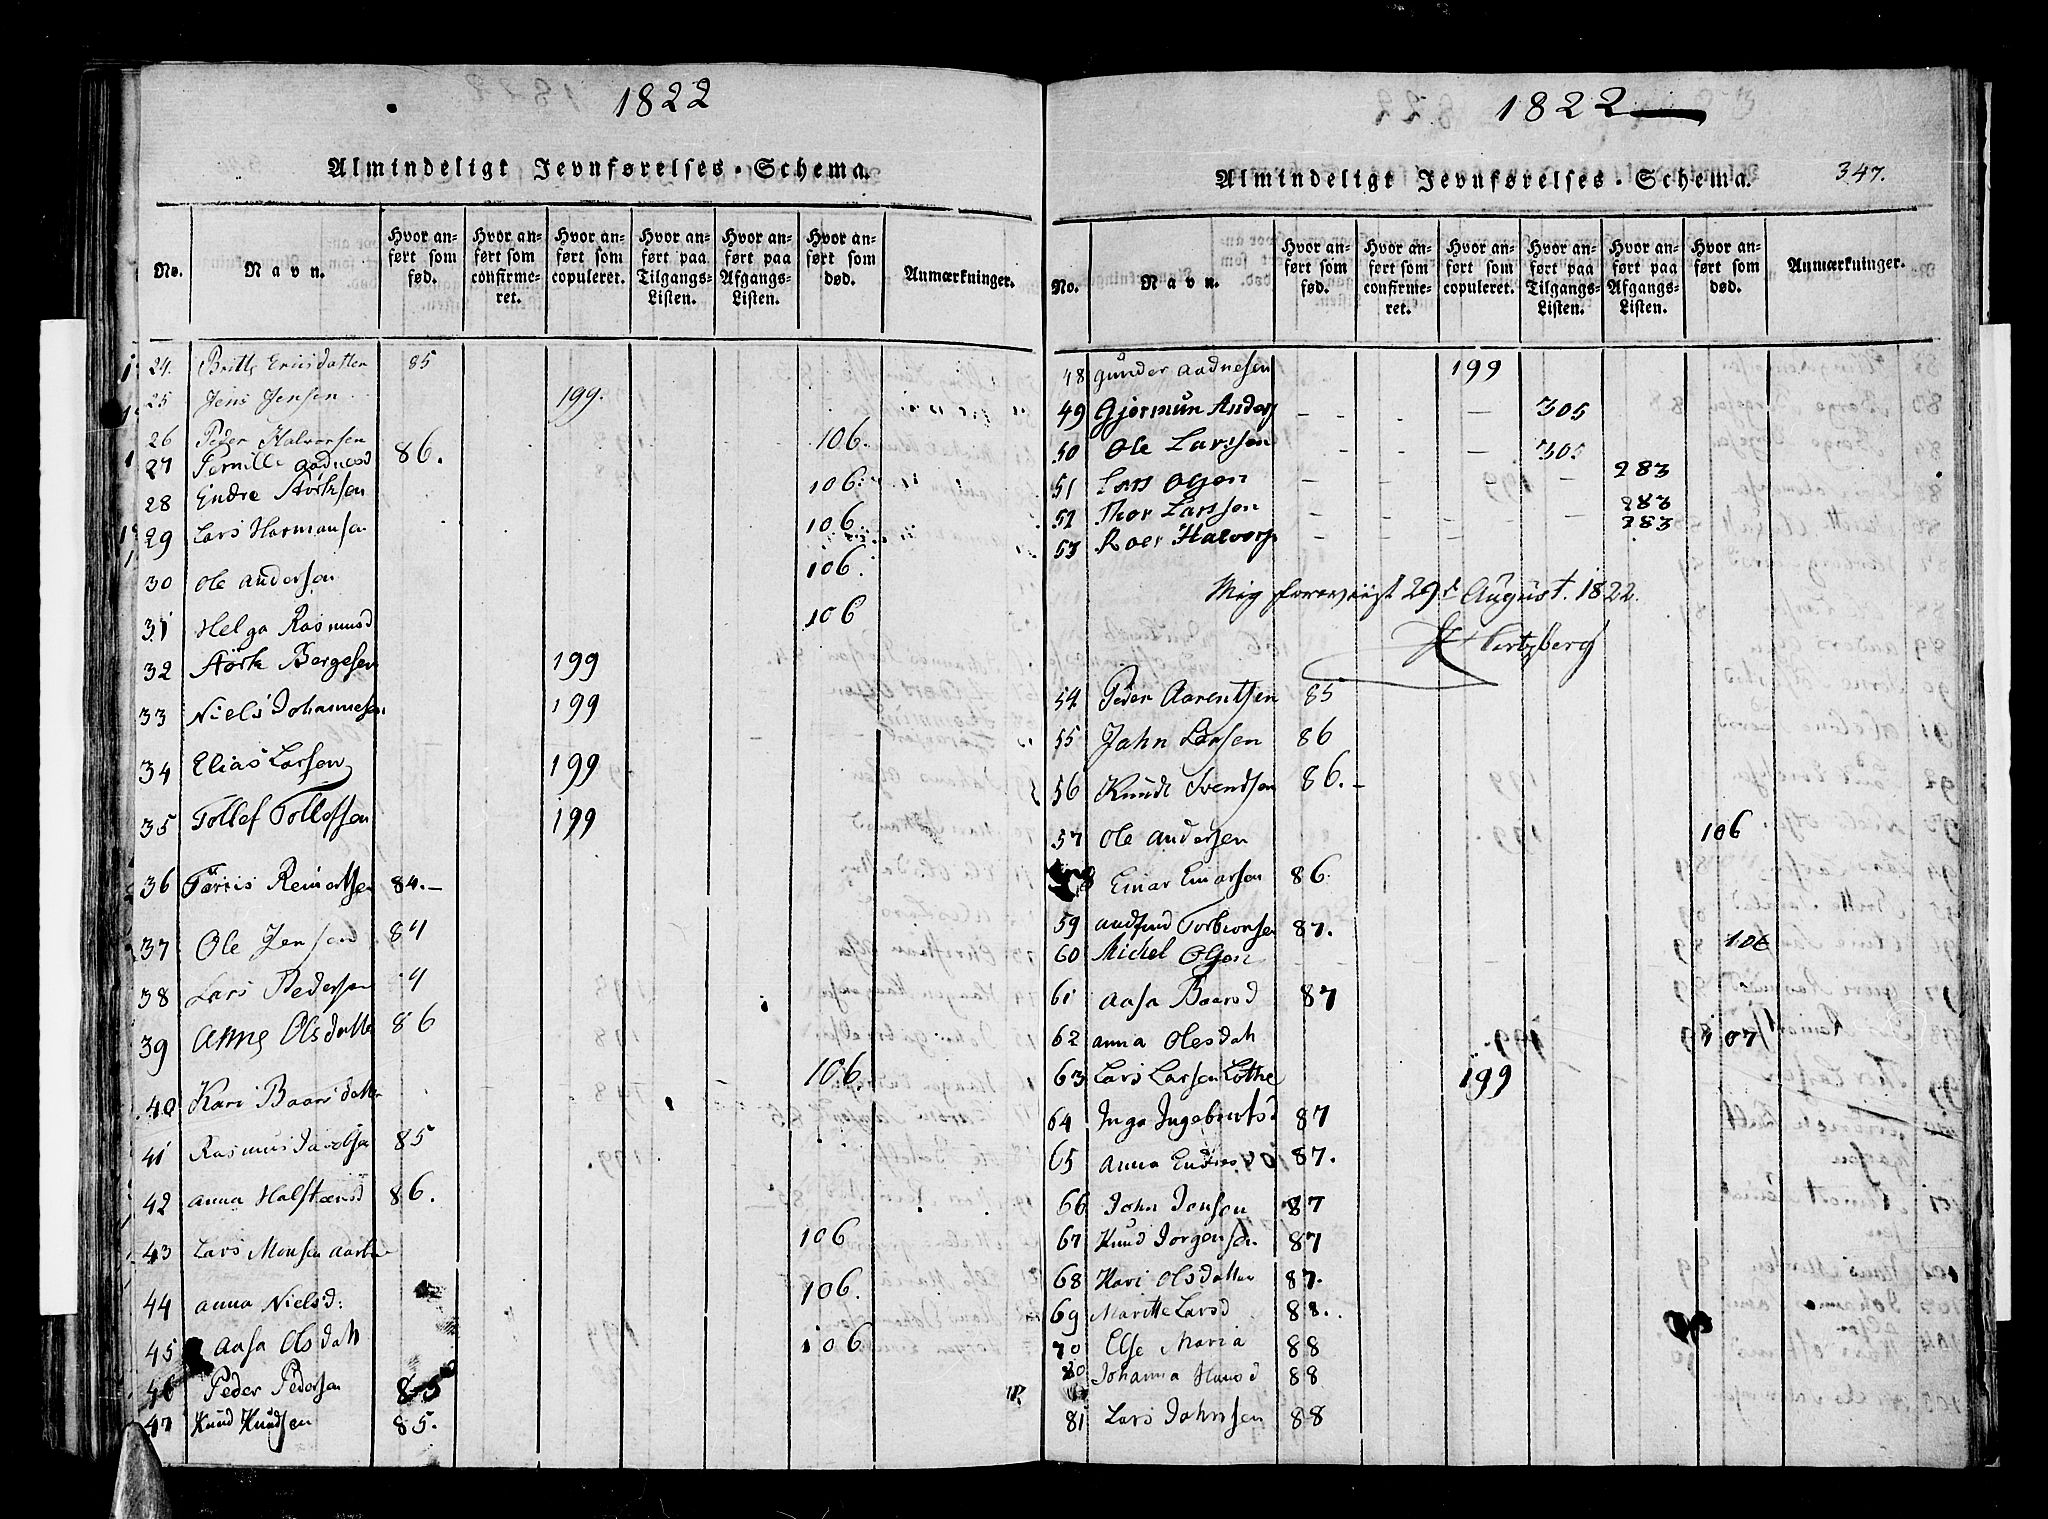 1822
Almindeligt Jevnførelses-Schema.
No. Navn. Hvor anført som fød. Hvor anført som confirmeret. Hvor anført som copuleret. Hvor anført paa Tilgangs-Listen. Hvor anført paa Afgangs-Listen. Hvor anført som død. Anmærkninger.
24. Britte Ericsdatter 85
25 Jens Jensen 199.
26 Peder Halvorsen 106.
27 Pernille Aadnesd 86.
28 Endre Størksen 106.
29 Lars Hermansen 106
30 Ole Andersen 106.
31 Helga Rasmusd 106
32 Størk Bergesen 199
33 Niels Johannesen 199
34 Elias Larsen 199
35 Tollef Tollefsen 199
36 Reinertsen 84.-
37 Ole Jensen 84
38 Lars Pedersen 84
39 Anne Olsdatte 86
40 Kari Baarsdatter 106.
41 Rasmus 85
42 Anna Halstensd 86.
43 Lars Monsen 106
44 Anna Nielsd: 106.
45 Aasa Olsdatt 106
46 Peder Pedersen 85
47 Knud Knudsen 85.
1822
347.
Almindeligt Jevnførelses-Schema.
No. Navn. Hvor anført som fød. Hvor anført som confirmeret. Hvor anført som copuleret. Hvor anført paa Tilgangs-Listen. Hvor anført paa Afgangs-Listen. Hvor anført som død. Anmærkninger.
48 Gunder Aadnesen 199
49 Gjermun Anders - - - 305
50 Ole Larssen - - - 305
51 Lars Olsen - - - - 283
52 Thor Larssen - - - - 283
53 Roer Halvors - - - 283
Mig foreviist 29d August. 1822.
Hertzberg
54 Peder Aarentsen 85
55 Jahn Larsen 86
56 Knudt Svendsen 86.-
57 Ole Andersen 106
58 Einar Einarsen 86.
59 Audfind Torbiønsen 87.
60 Michel Olsen 106
61 Aasa Baarsd 87
62 Anna Olesdatt 107
63 Lars Larsen Lothe 199
64 Inga Ingebrectsd 87
65 Anna Endres 87.
66 John Jonsen 87
67 Knud Jorgensen 87
68 Kari Olsdatter 87.
69 Maritte Larsd 88.
70 Else Maria 88
80 Johanna Hansd 88
81 Lars Johnsen 88